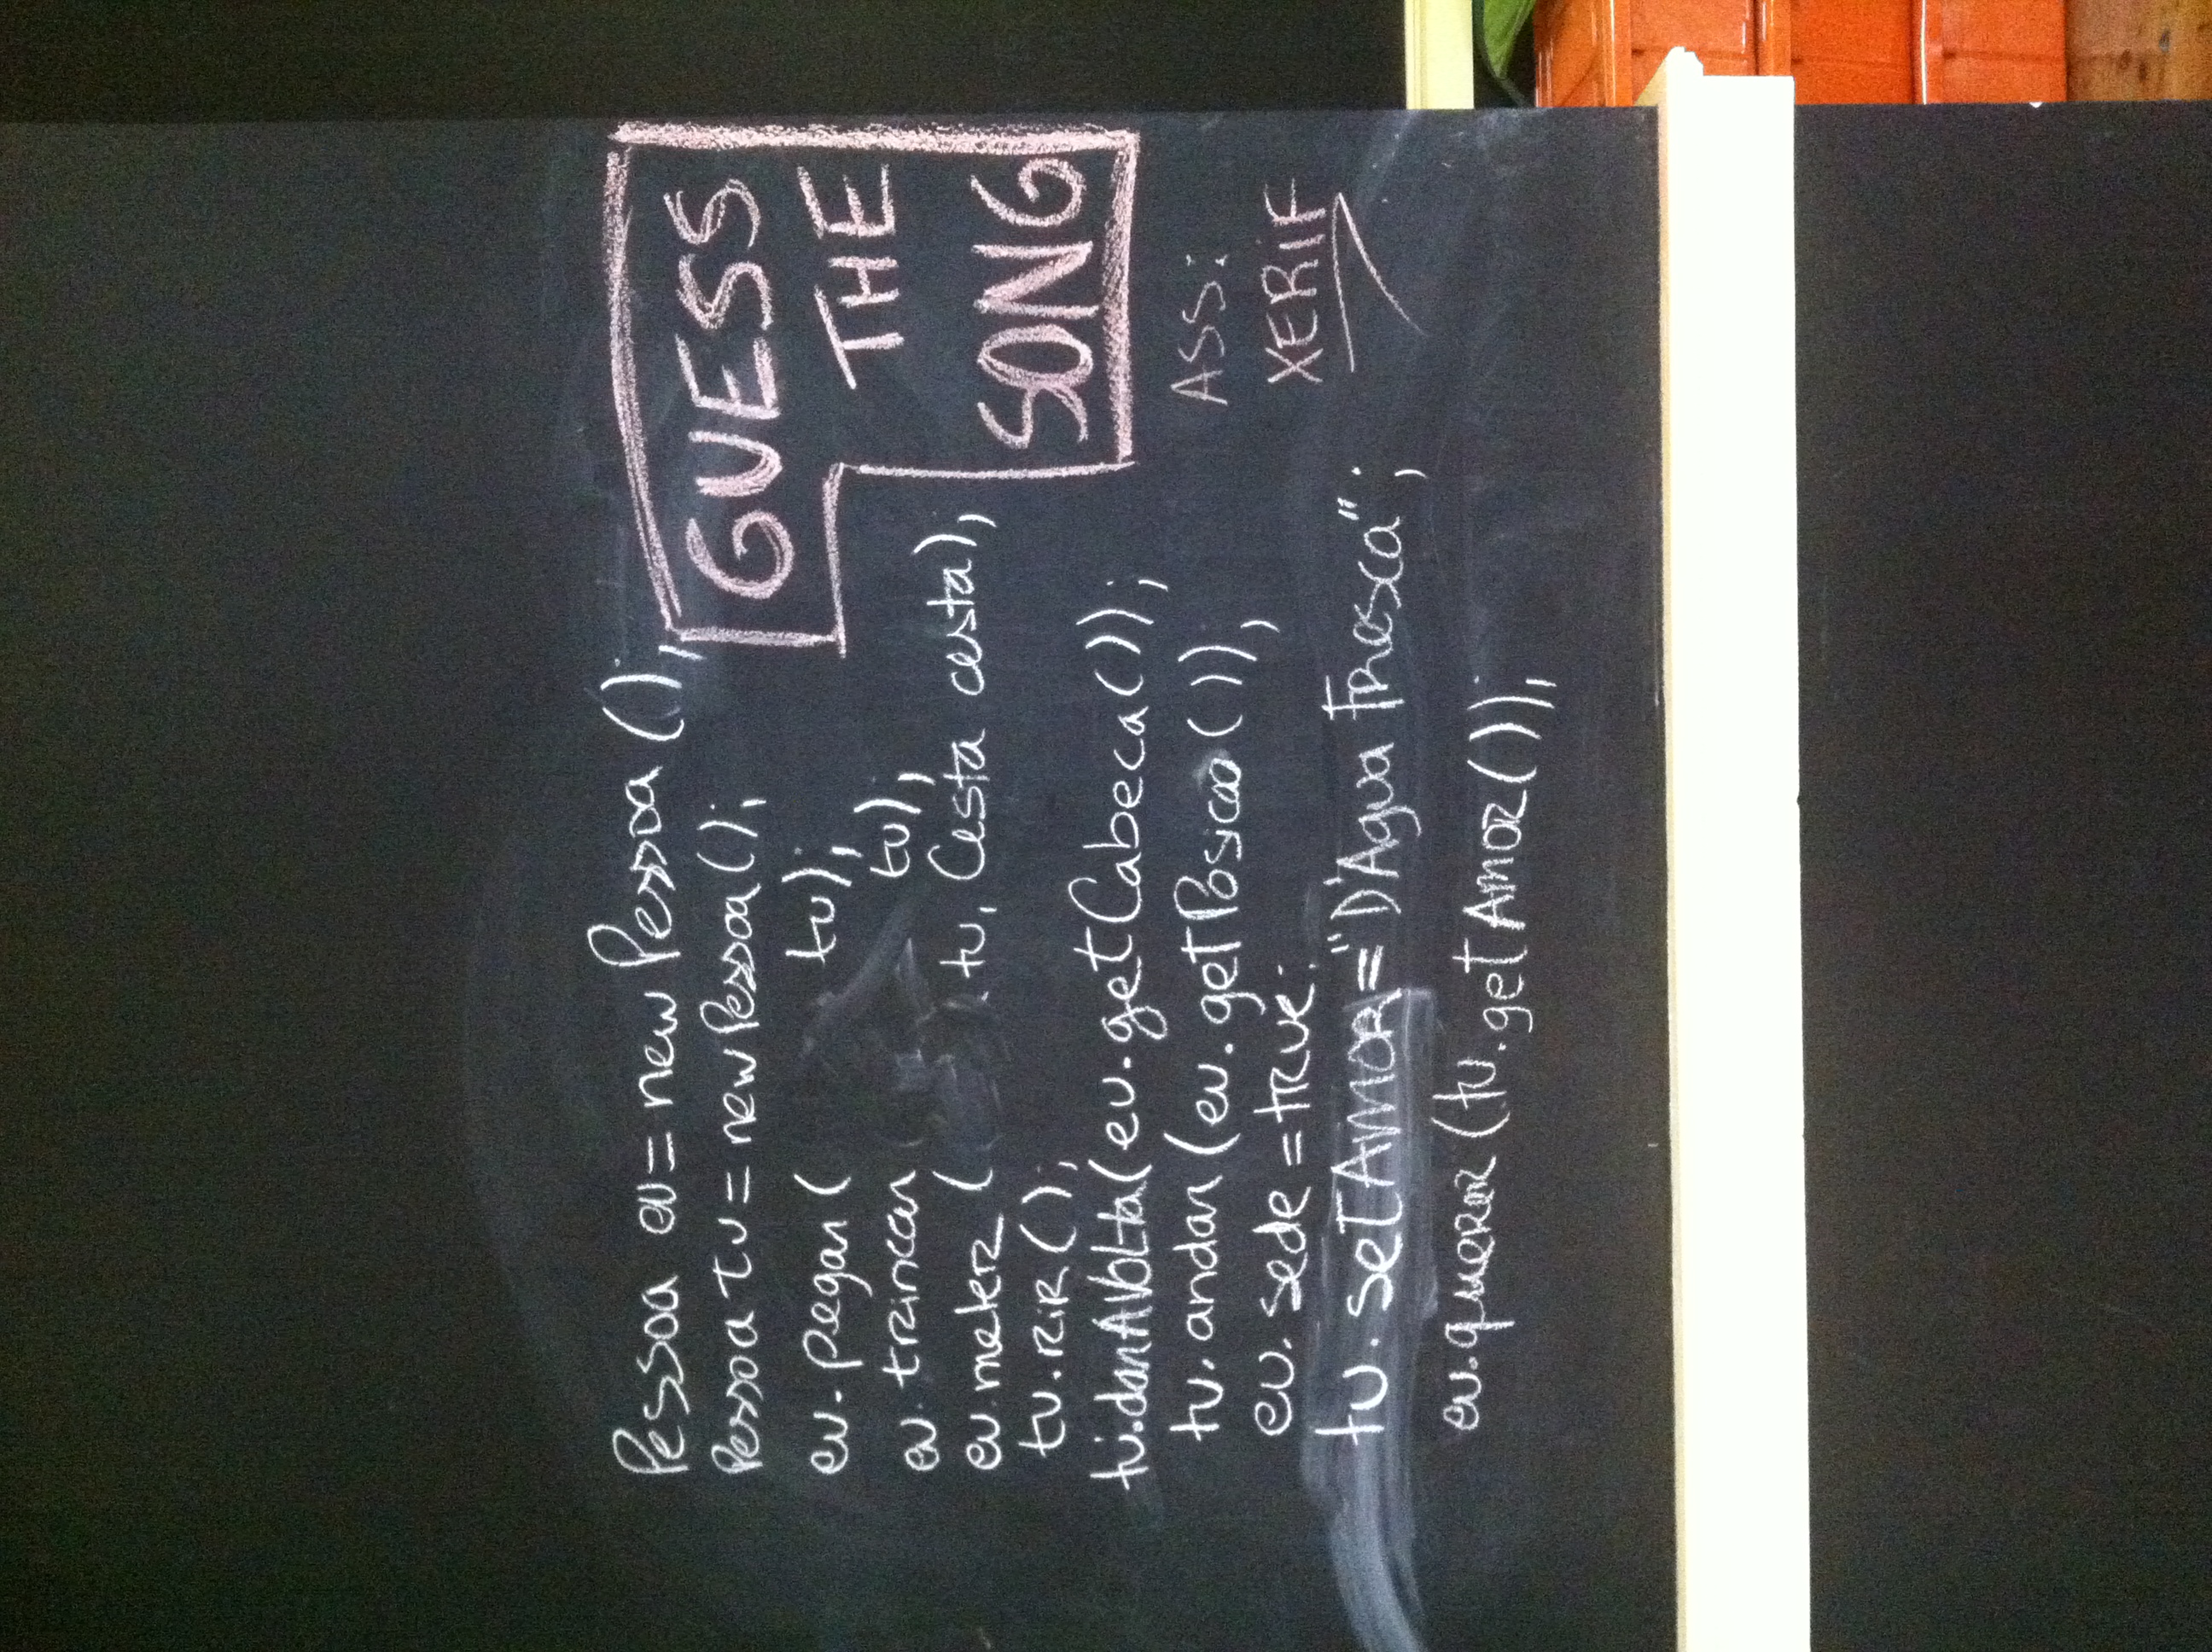 Pessoa eu = new Pessoa ();
Pessoa tu = new Pessoa ();
eu. pegar ( tu);
eu. trincar tu);
eu. meter ( . tu, Cesta cesta);
tu. RiR ();
tu.darAVolta(eu.getCabeca());
tu. andar (eu. getPosicao ());
eu. sede = true;
tu. setAmor = "D'Agua Fresca";
eu.querer (tu.getAmor());
GUESS
THE
SONG
ASS:
XERiF